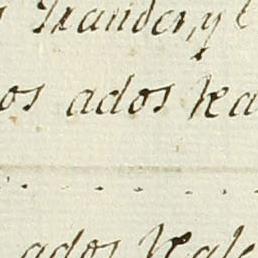 Grander, y l
os ados Ka
ados Kale